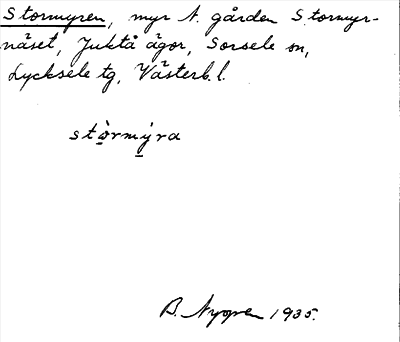 Stormyren, myr N. gården Stormyr-
näset, Juktå ägor, Sorsele sn,
Lycksele tg, Västerb. l.
stòrmýra
B. Nygren 1935.